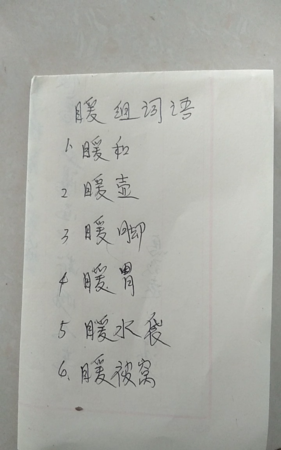 暖组词语
1 暖和
2 暖壶
3 暖脚
4 暖胃
5 暖水袋
6. 暖被窝